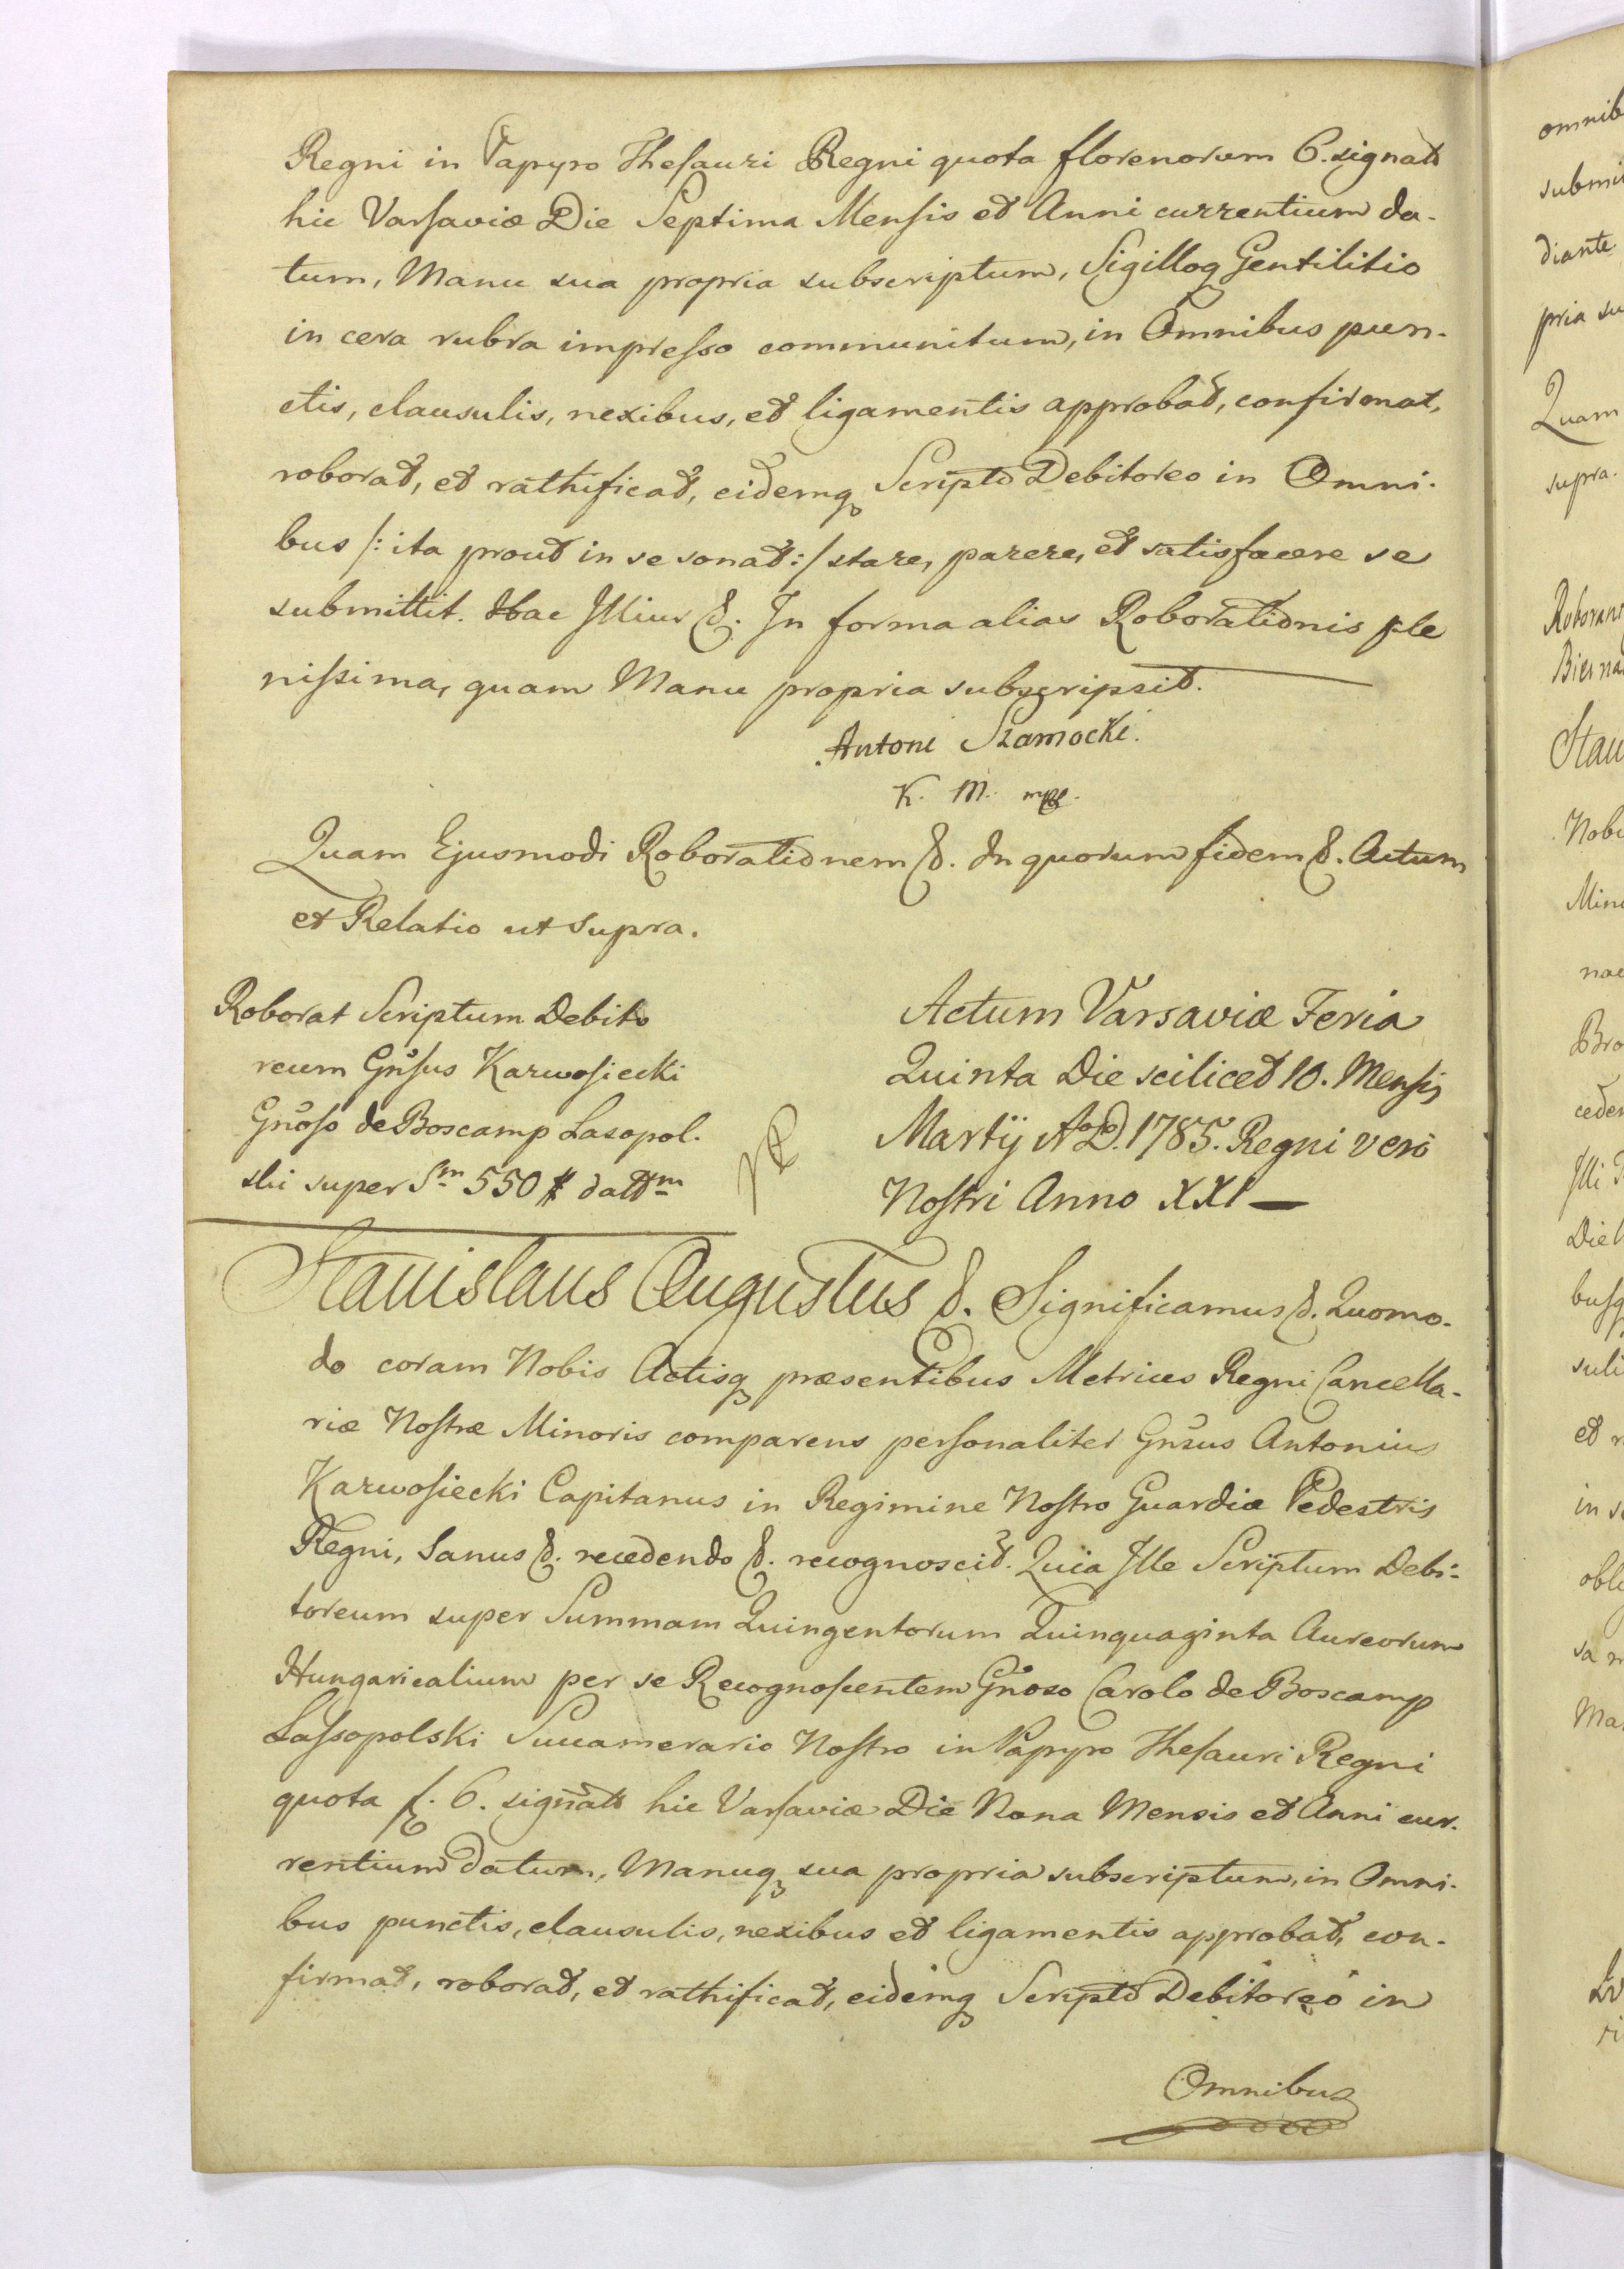 Regni in Papyro Thesauri Regni quota florenorum 6. signatt
hic Varsaviæ Die Septima Mensis et Anni currentium da-
tum, Manu sua propria subscriptum, Sigilloq Gentilitio
in cera rubra impresso communitum, in Omnibus pun-
ctis, clausulis, nexibus, et ligamentis approbat, confirmat,
roborat, et rathificat, eidemq Scripto Debitoreo in Omni-
bus /: ita prout in se sonat :/ stare, parere, et satisfacere se
submittit. Hac Illius &. In forma alias Roborationis ple
nissima, quam Manu propria subscripsit.
Antoni Szamocki.
K. M. mpp.
Quam Ejusmodi Roborationem &. In quorum fidem &. Actum
et Relatio ut supra.
Roborat Scriptum Debito
reum Gnsus Karwosiecki
Gnoso de Boscamp Lasopol-
ski super Sm 550 # dattm
Actum Varsaviæ Feria
Quinta Die scilicet 10. Mensis
Martij AoD. 1785. Regni vero
Nostri Anno XXI —
Stanislaus Augustus &. Significamus &. Quomo-
do coram Nobis Actisq præsentibus Metrices Regni Cancella-
riæ Nostræ Minoris comparens personaliter Gnsus Antonius
Karwosiecki Capitanus in Regimine Nostro Guardiæ Pedestris
Regni, Sanus &. recedendo &. recognoscit. Quia Ille Scriptum Debi-
toreum super Summam Quingentorum Quinquaginta Aureorum
Hungaricalium per se Recognoscentem Gnoso Carolo de Boscamp
Lassopolski Succamerario Nostro in Papyro Thesauri Regni
quota f. 6. signatt hic Varsaviæ Die Nona Mensis et Anni cur-
rentium datum, Manuq sua propria subscriptum, in Omni-
bus punctis, clausulis, nexibus et ligamentis approbat, con-
firmat, roborat, et rathificat, eidemq Scripto Debitoreo in
Omnibus
omnib
submi
diante
pria su
Quam
supra.
Roboran
Bierna
Stau
Nobi
Mino
nae
Bro
ceden
Illi
Die
busq
suli
et r
in s
obl
sa
Ma